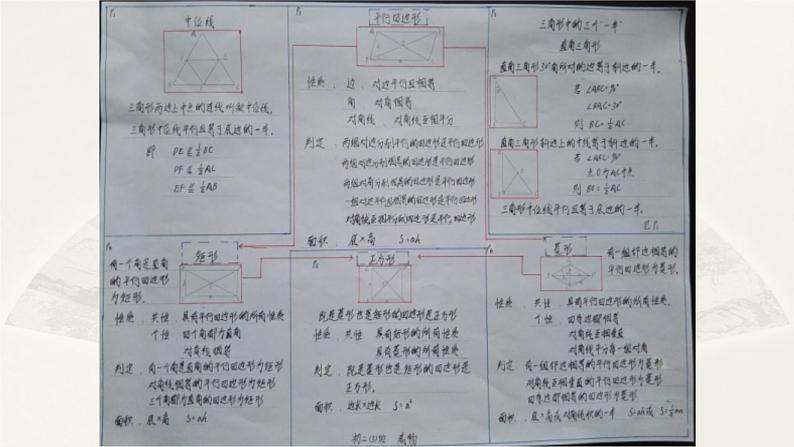 P₁
中位线
三角形两边上中点的连线叫做中位线。
三角形中位线平行且等于底边的一半。
即 DE⫽½BC
DF⫽½AC
EF⫽½AB
平行四边形
性质: 边: 对边平行且相等
角 对角相等
对角线: 对角线互相平分
判定: 两组对边分别平行的四边形是平行四边形
两组对边分别相等的四边形是平行四边形
两组对角分别相等的四边形是平行四边形
一组对边平行且相等的四边形是平行四边形
对角线互相平分的四边形是平行四边形
面积: 底×高 S=ah
三角形中的三个"一半"
直角三角形
直角三角形30°角所对的边等于斜边的一半。
若 ∠ABC=90°
∠BAC=30°
则 BC=½AC
直角三角形斜边上的中线等于斜边的一半。
若 ∠ABC=90°
点O为AC中点
则 BO=½AC
三角形中位线平行且等于底边的一半。
见P₁
矩形
有一个角是直角
的平行四边形
为矩形。
性质: 共性: 具有平行四边形的所有性质
个性: 四个角都为直角
对角线相等
判定: 有一个角是直角的平行四边形为矩形
对角线相等的平行四边形为矩形
三个角都为直角的四边形为矩形
面积: 底×高 S=ah
P₅
正方形
既是菱形也是矩形的四边形是正方形
性质: 共性 具有矩形的所有性质
具有菱形的所有性质
判定: 既是菱形也是矩形的四边形是
正方形。
面积: 边长×边长 S=a²
初二(3)班
菱形
有一组邻边相等的
平行四边形为菱形。
性质: 共性: 具有平行四边形的所有性质。
个性: 四条边都相等
对角线互相垂直
对角线平分每一组对角
判定: 有一组邻边相等的平行四边形为菱形
对角线互相垂直的平行四边形为菱形
四条边都相等的四边形为菱形
面积: 底×高或对角线积的一半 S=ah或 S=½mn